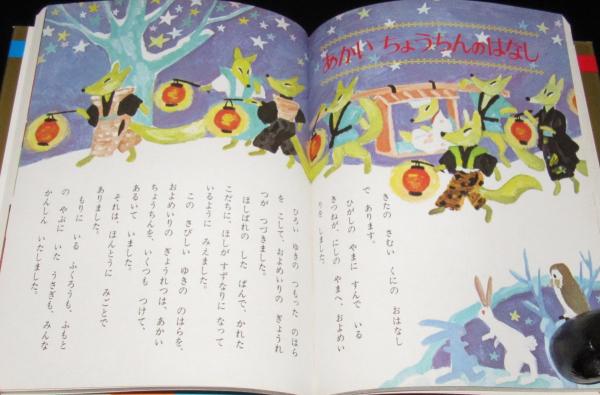 あかい ちょうちんのはなし
きたの さむい くにの おはなし
で あります。
ひがしの やまに すんで いる
きつねが、にしの やまへ、およめい
りを しました。
ひろい ゆきの つもった のはら
を こして、およめいりの ぎょうれ
つが つづきました。
ほしばれの した ばんで、かれた
こだちに、ほしが すずなりに なって
いるように みえました。
この さびしい ゆきの のはらを、
およめいりの ぎょうれつは、あかい
ちょうちんを、いくつも つけて、
あるいて いました。
それは、ほんとうに みごとで
ありました。
もりに いる ふくろうも、ふもと
の やぶに いた うさぎも、みんな
かんしん いたしました。